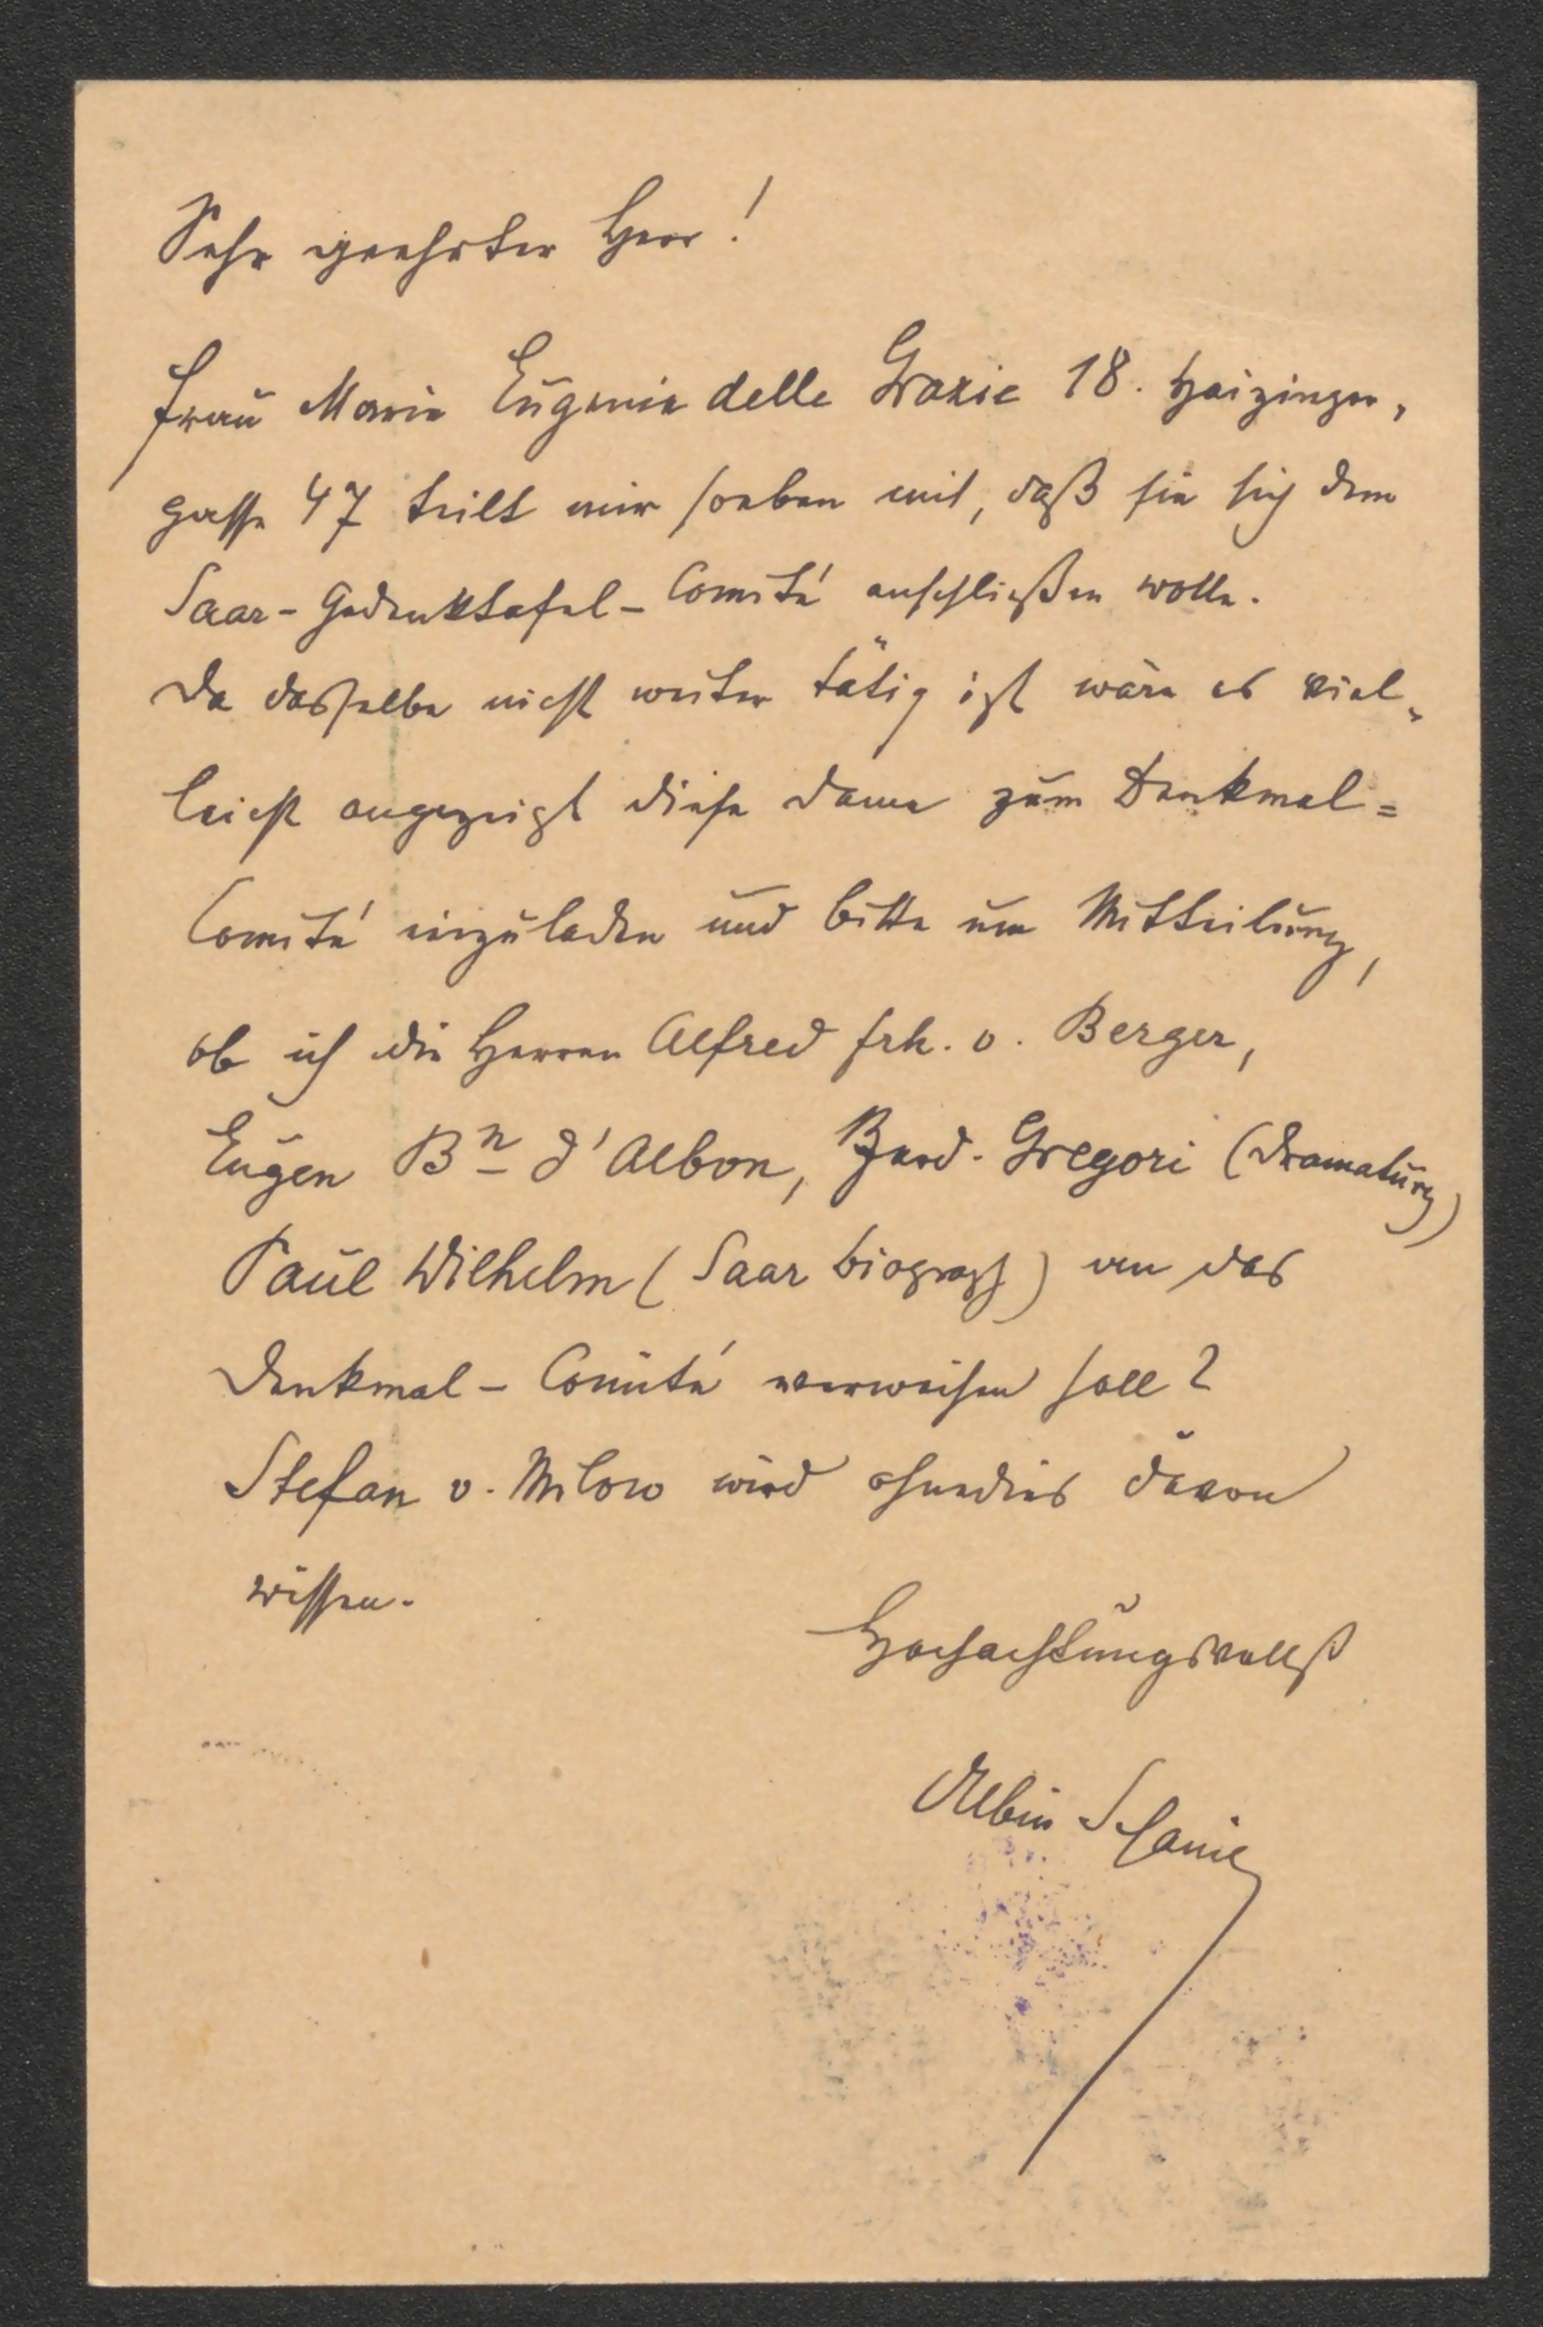 Sehr geehrter Herr!
Frau Marie Eugenie delle Grazie 18. Haizinger-
gasse 47 teilt mir soeben mit, daß sie sich dem
Saar-Gedenktafel-Comité anschließen wolle.
Da dasselbe nicht weiter tätig ist wäre es viel-
leicht angezeigt diese Dame zum Denkmal=
Comité einzuladen und bitte um Mitteilung,
ob ich die Herren Alfred frh. v. Berger,
Eugen Bn d'Albon, Ferd. Gregori (Dramaturg)
Paul Wilhelm (Saar biograf) an das
Denkmal-Comité verweisen soll?
Stefan v. Milow wird ohnedies davon
wissen.
Hochachtungsvollst
Albin